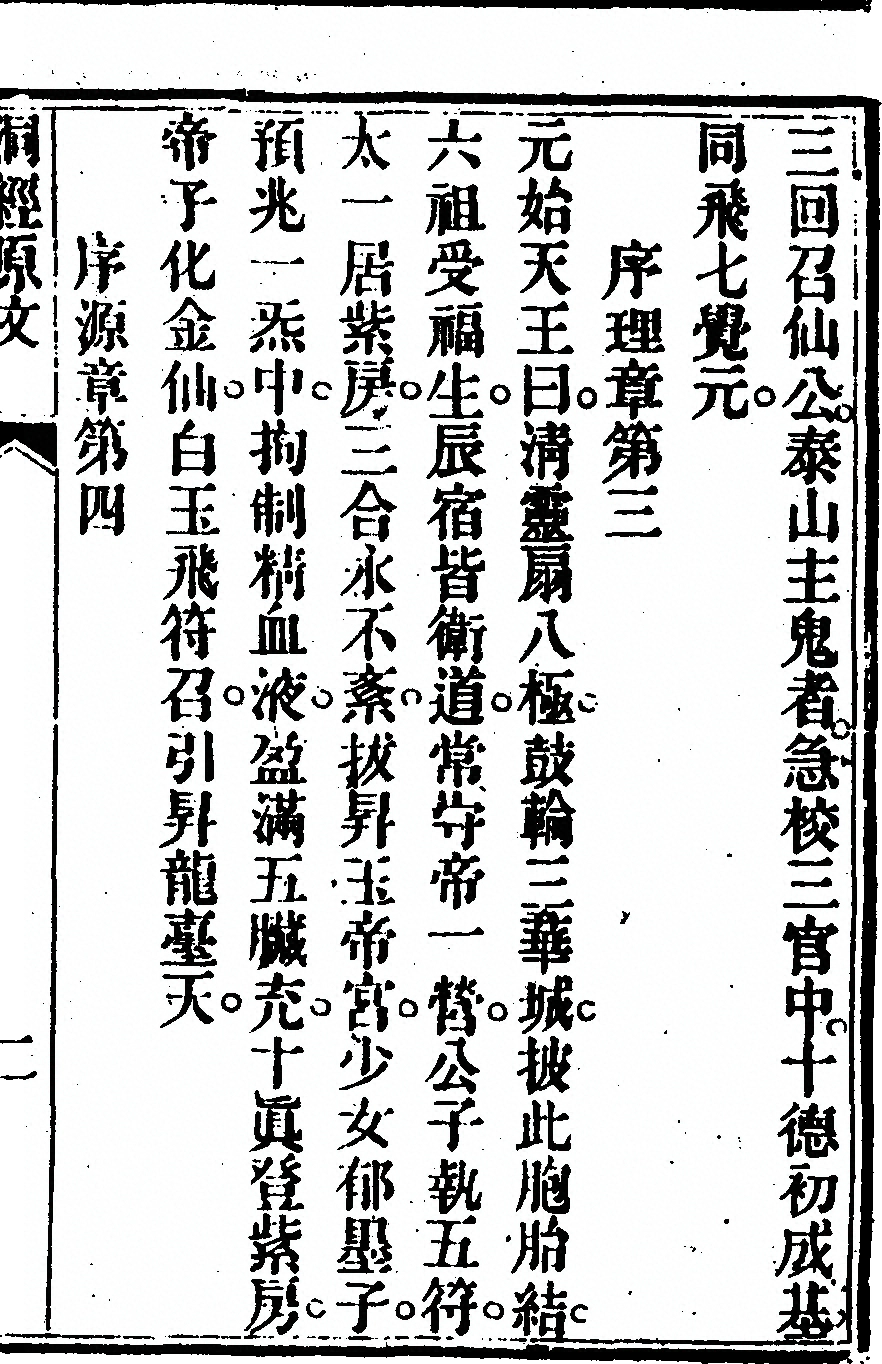 三回召仙公。泰山主鬼者。急校三官中。十德初成基。
同飛七覺元。
序理章第三
元始天王曰。淸靈扇八極。鼓輪三華城。披此胞胎結。
六祖受福生。辰宿皆衛道。常守帝一營。公子執五符。
太一居紫房。三合永不紊。拔昇玉帝宮。少女郁墨子。
預兆一炁中。拘制精血液。盈滿五臟充。十眞登紫房。
帝子化金仙。白玉飛符召。引昇龍臺天。
序源章第四
洞經原文
二